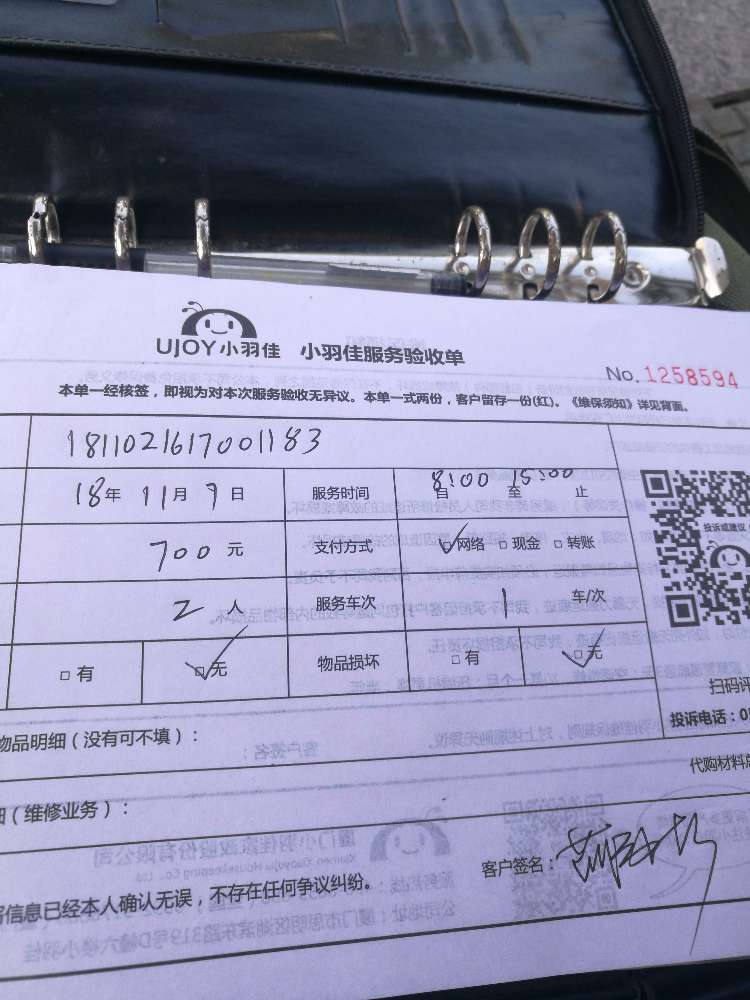 UJOY小羽佳 小羽佳服务验收单
No.1258594
本单一经核签，即视为对本次服务验收无异议。本单一式两份，客户留存一份(红)。《维保须知》详见背面。
1811021617001183
18年 11月 9日 服务时间 自 8:00 至 15:00 止
700元 支付方式 ☑网络 □现金 □转账
2人 服务车次 1 车/次
□有 ☑无 物品损坏 □有 ☑无
投诉或建议
扫码评
物品明细（没有可不填）：
投诉电话：0
代购材料总
细（维修业务）：
客户签名：
信息已经本人确认无误，不存在任何争议纠纷。